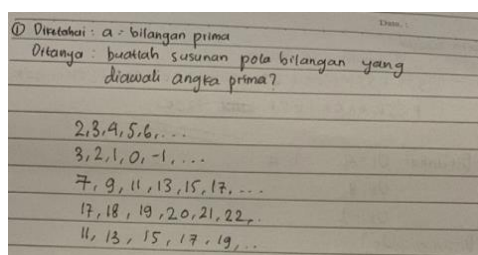 Date. :
① Diketahui : a = bilangan prima
Ditanya : buatlah susunan pola bilangan yang
diawali angka prima?
2,3,4,5,6,...
3,2,1,0,-1,...
7,9,11,13,15,17,...
17,18,19,20,21,22,..
11,13,15,17,19,..